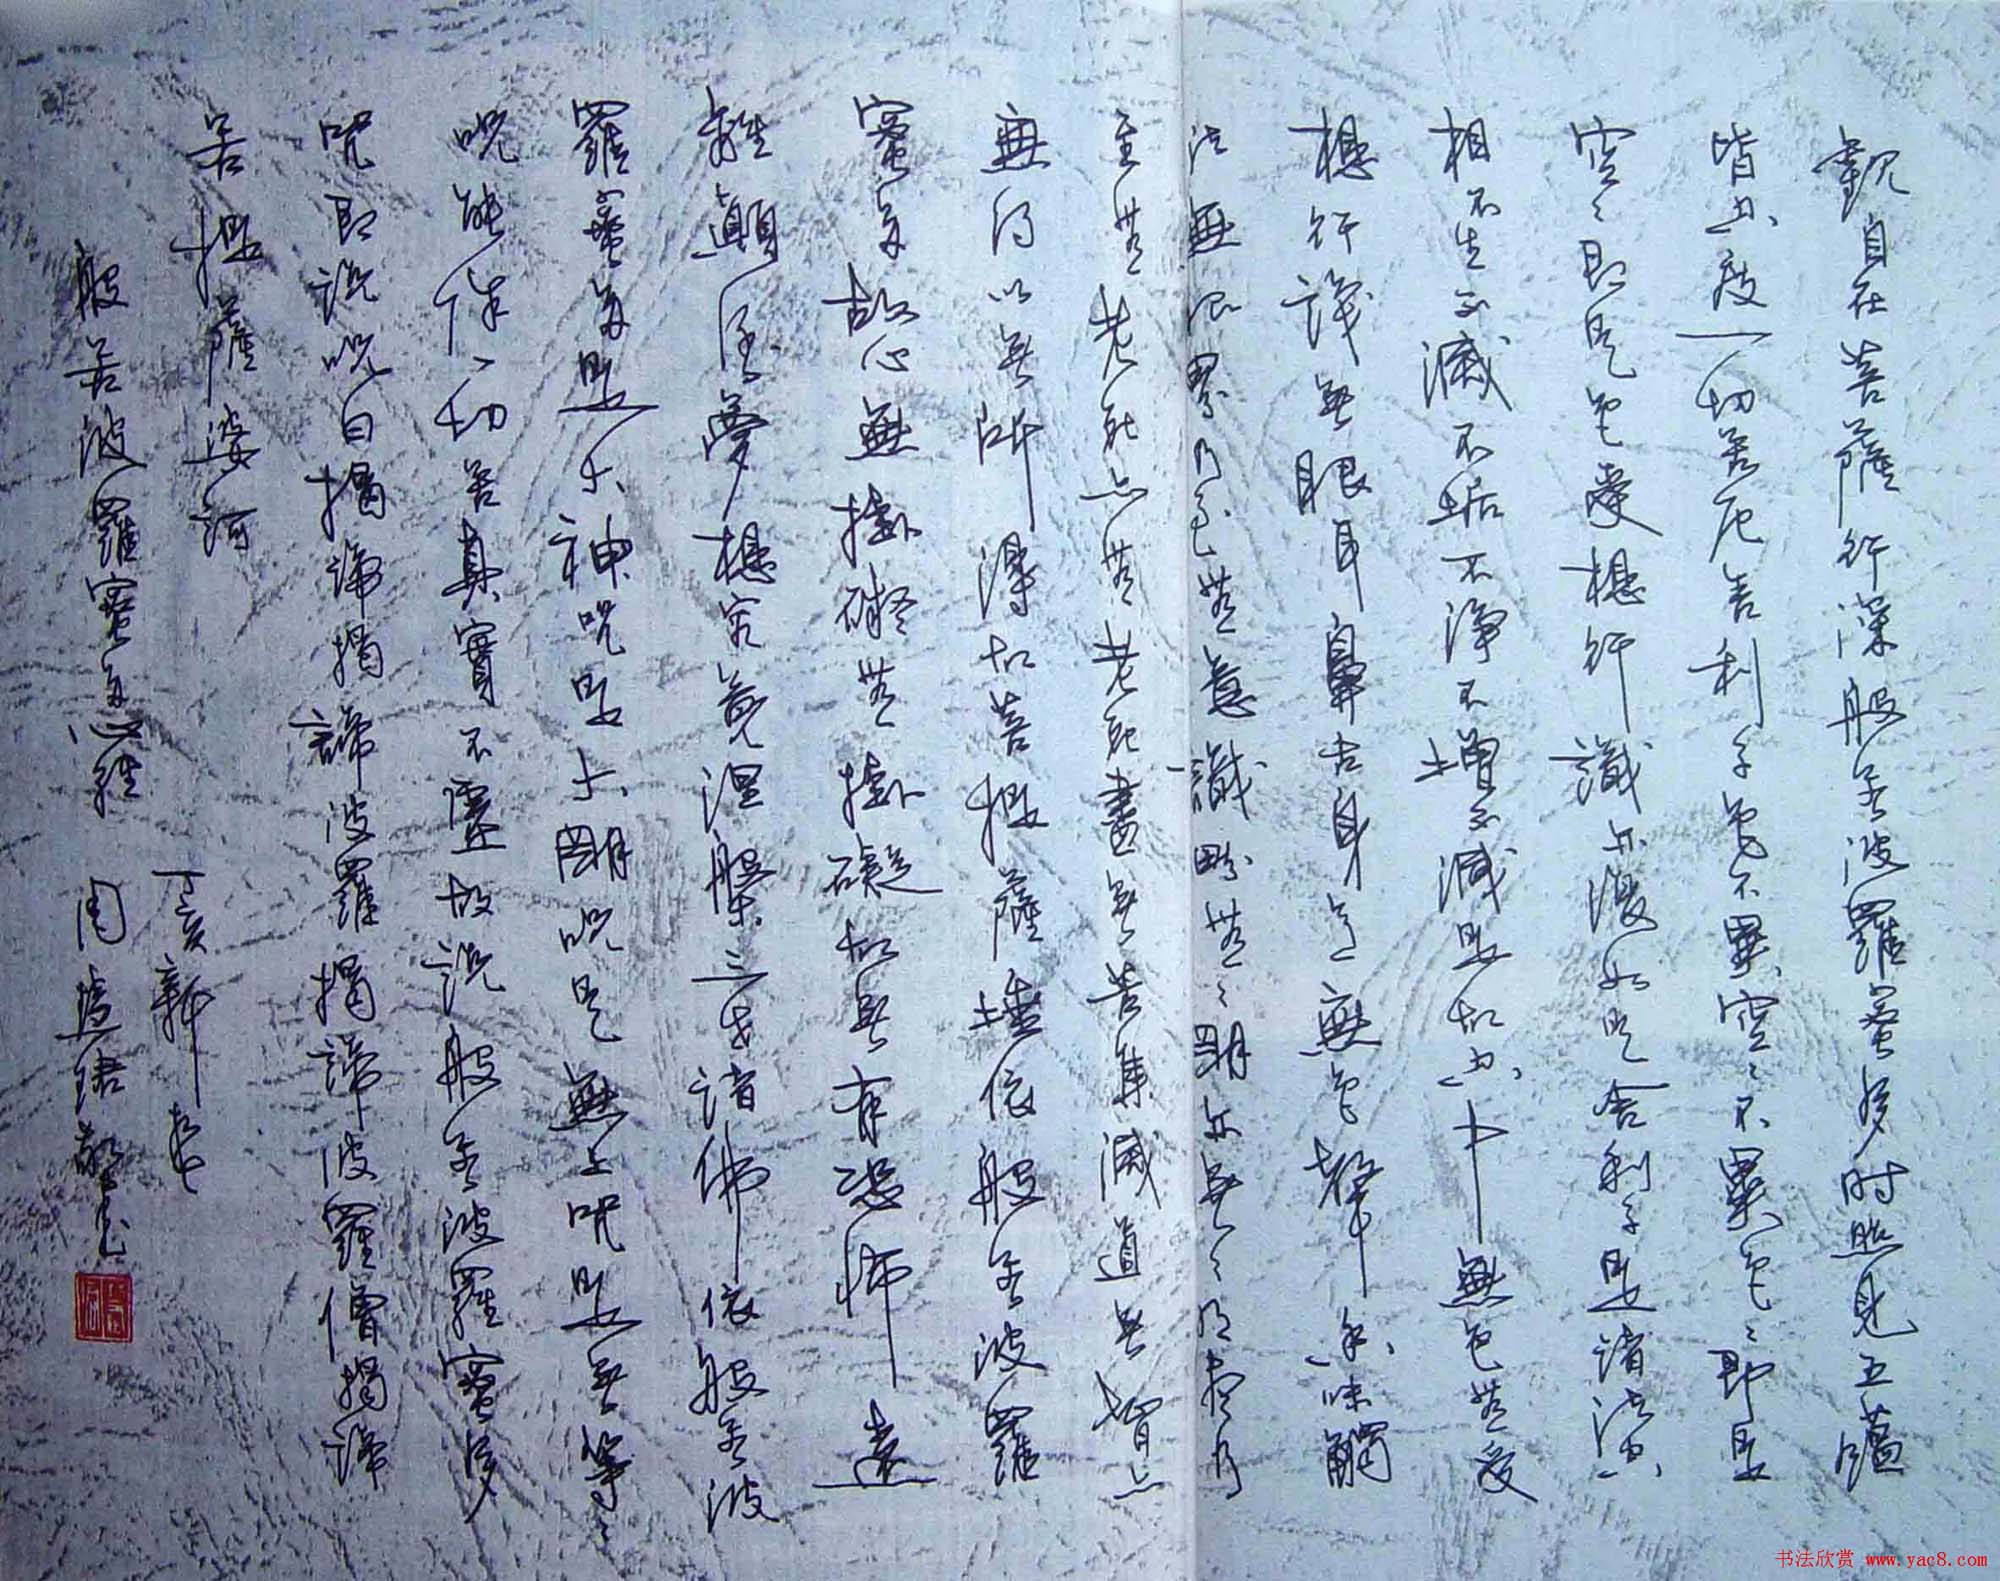 觀自在菩薩行深般若波羅蜜多時照見五蘊
皆空度一切苦厄舍利子色不異空〻不異色〻即是
空〻即是色受想行識亦復如是舍利子是諸法空
相不生不滅不垢不淨不增不減是故空中無色無受
想行識無眼耳鼻舌身意無色聲香味觸
法無眼界乃至無意識界無〻明亦無〻明盡乃
至無老死亦無老死盡無苦集滅道無智亦
無得以無所得故菩提薩埵依般若波羅
蜜多故心無掛礙無掛礙故無有恐怖遠
離顛倒夢想究竟涅槃三世諸佛依般若波
羅蜜多是大神咒是大明咒是無上咒是無等〻
咒能除一切苦真實不虛故說般若波羅蜜多
咒即說咒曰揭諦揭諦波羅揭諦波羅僧揭諦
菩提薩婆訶
般若波羅蜜多心經
丁亥新春
周 敬書
书法欣赏 www.yac8.com